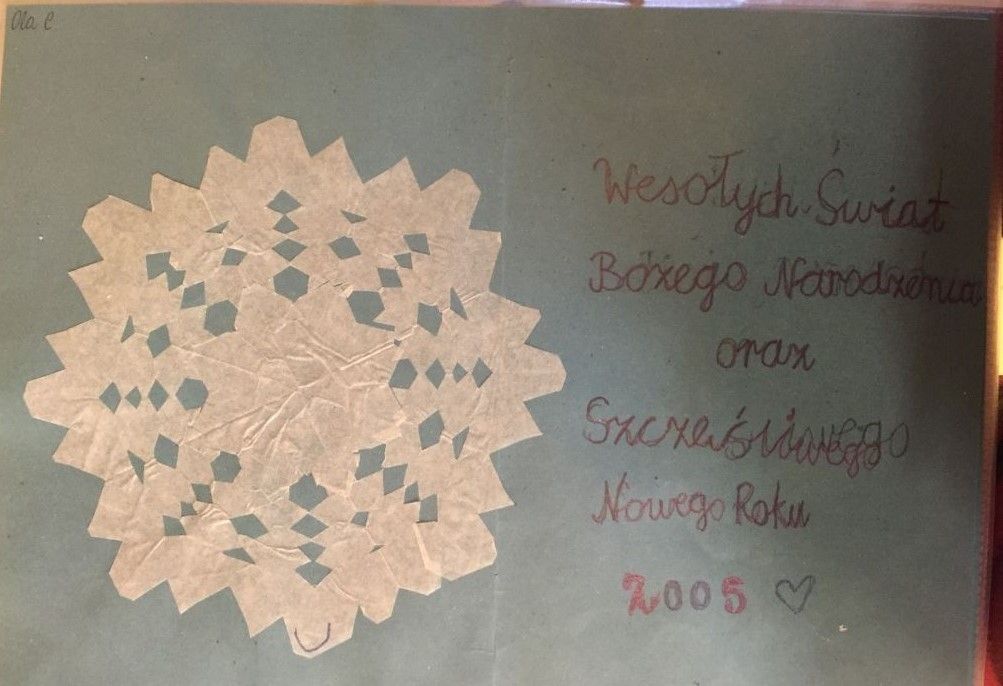 Ola C
Wesołych Świat
Bożego Narodzenia
oraz
Szczęśliwego
Nowego Roku
2005 ♡